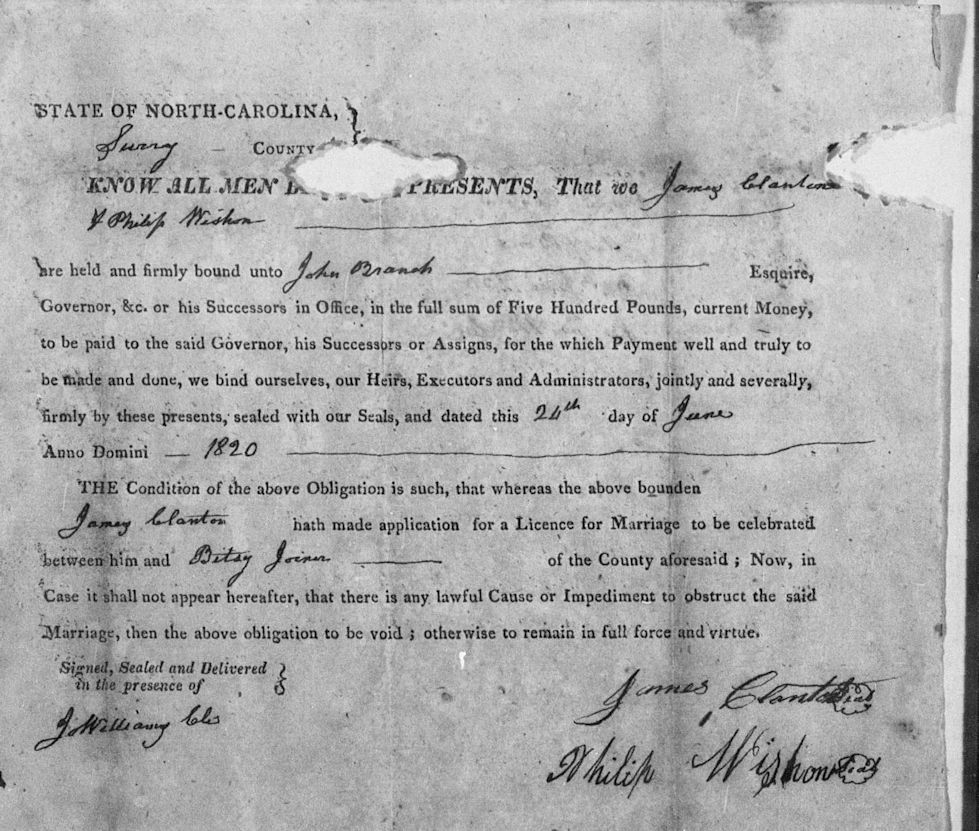 STATE OF NORTH-CAROLINA, }
Surry — COUNTY
KNOW ALL MEN PRESENTS, That we James Clanton
& Philip Wishon
are held and firmly bound unto John Branch Esquire,
Governor, &c. or his Successors in Office, in the full sum of Five Hundred Pounds, current Money,
to be paid to the said Governor, his Successors or Assigns, for the which Payment well and truly to
be made and done, we bind ourselves, our Heirs, Executors and Administrators, jointly and severally,
firmly by these presents, sealed with our Seals, and dated this 24th day of June
Anno Domini — 1820
THE Condition of the above Obligation is such, that whereas the above bounden
James Clanton hath made application for a Licence for Marriage to be celebrated
between him and Betsy Joiner of the County aforesaid ; Now, in
Case it shall not appear hereafter, that there is any lawful Cause or Impediment to obstruct the said
Marriage, then the above obligation to be void ; otherwise to remain in full force and virtue.
Signed, Sealed and Delivered }
in the presence of
Jo Williams Clk
James Clanton Seal
Philip Wishon Seal